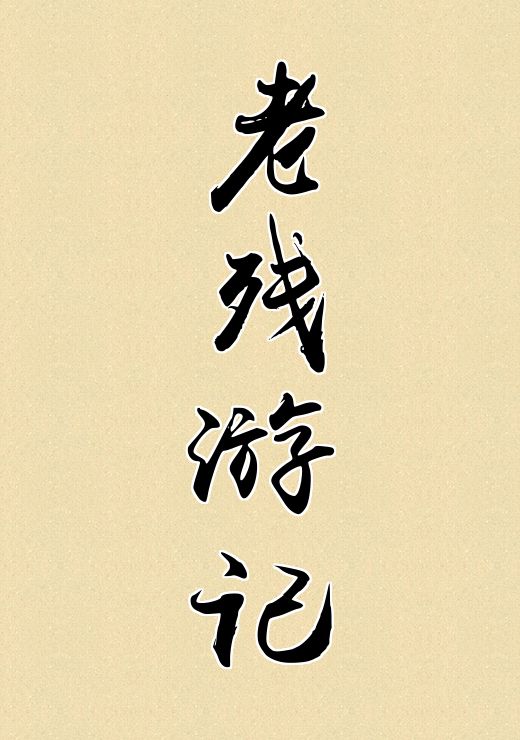 老残游记